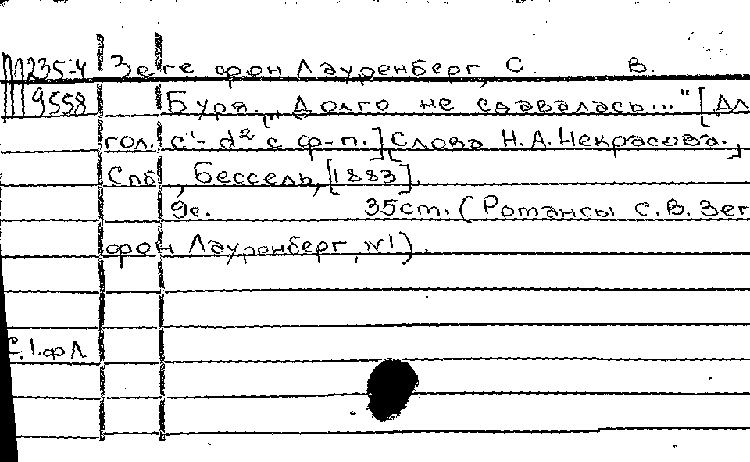 235-4 Зеге фон Лауренберг, С. В.
9558 Буря. „Долго не сдавалась..." [Дл
гол. c¹- d² с ф-п.] [Слова Н.А. Некрасова.]
Спб, Бессель, [1883].
9с. 35см. (Романсы С.В. Зег
фон Лауренберг, №1).
С.1.фЛ